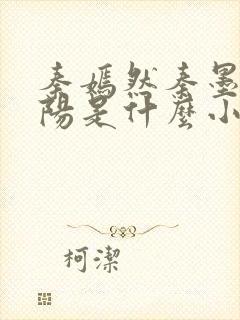 秦嫣然秦墨
陽是什麼小
柯潔